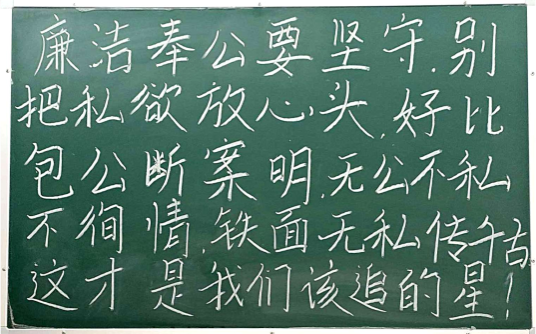 廉洁奉公要坚守,别
把私欲放心头,好比
包公断案明,无公不私
不徇情,铁面无私传千古
这才是我们该追的星!